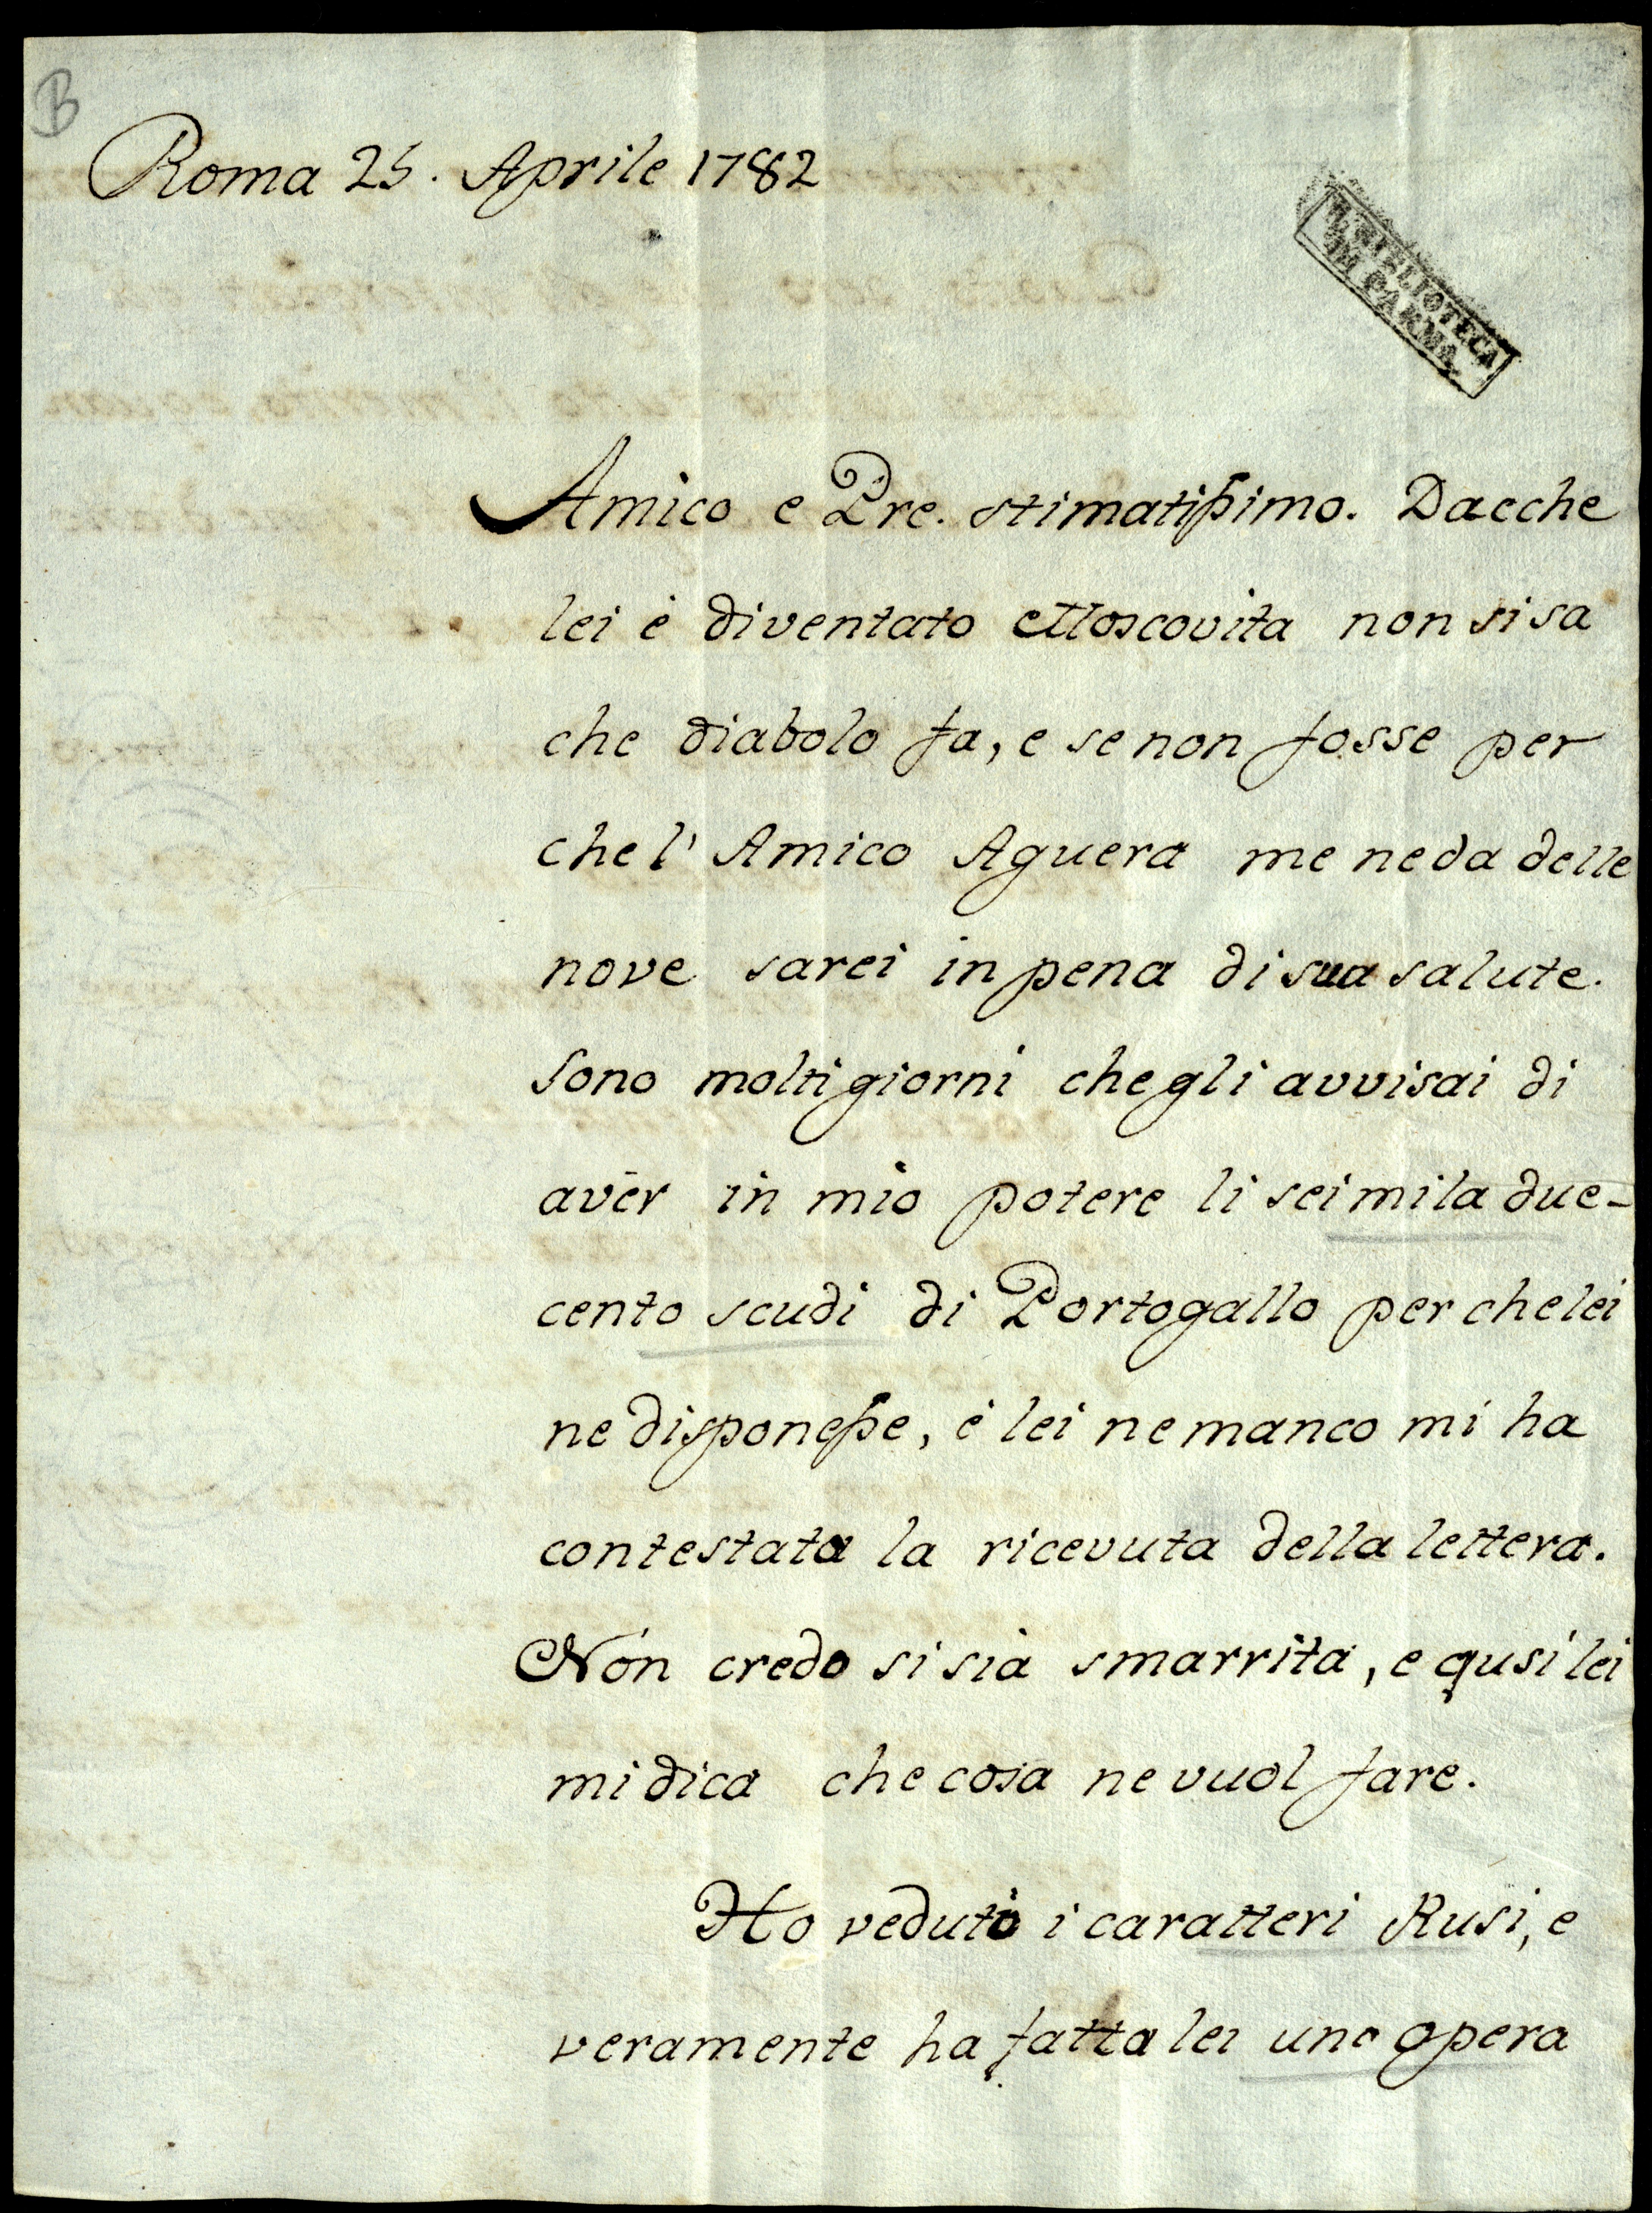 B
Roma 25. Aprile 1782
R. BIBLIOTECA
DI PARMA
Amico e Pre. stimatissimo. Dacche
lei è diventato Moscovita non si sa
che diabolo fa, e se non fosse per
che l' Amico Aguera me ne da delle
nove sarei in pena di sua salute.
Sono molti giorni che gli avvisai di
avér in mio potere li sei mila due-
cento scudi di Portogallo per che lei
ne disponesse, è lei ne manco mi ha
contestata la ricevuta della lettera.
Nón credo si sia smarrita, e qusi lei
mi dica che cosa ne vuol fare.
Ho veduto i caratteri Rusi, e
veramente ha fatta lei una opera